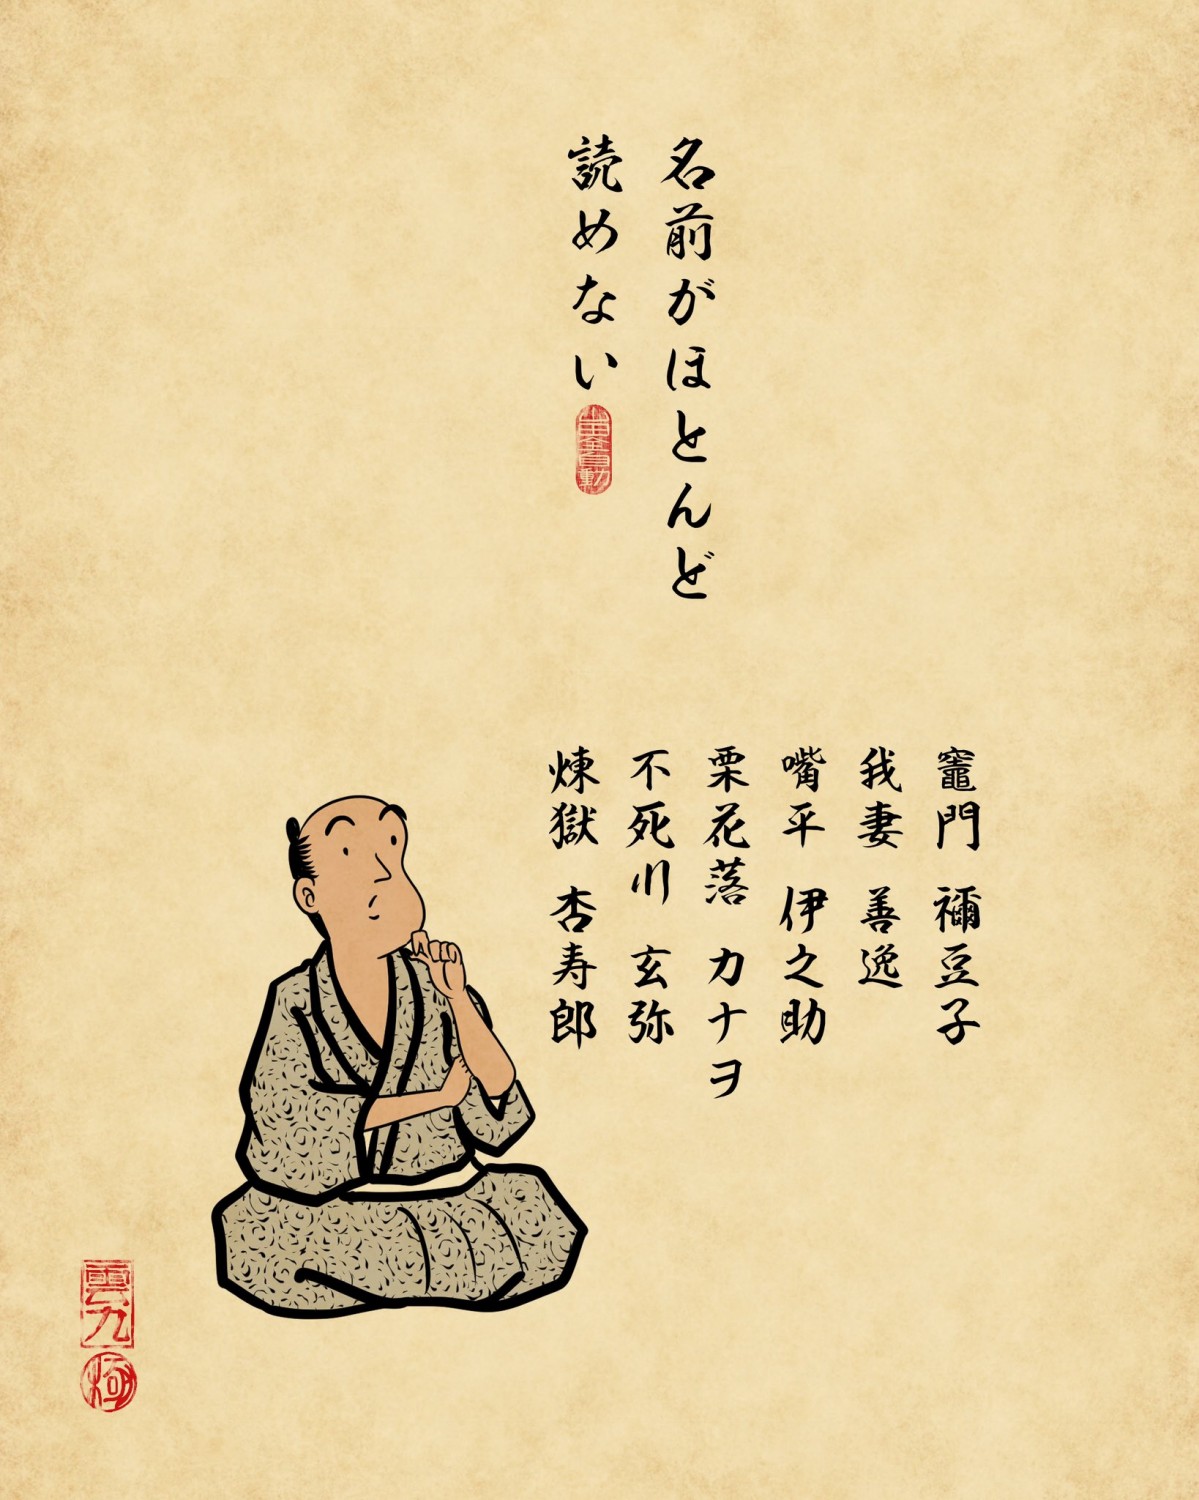 名前がほとんど
読めない
竈門 禰豆子
我妻 善逸
嘴平 伊之助
栗花落 カナヲ
不死川 玄弥
煉獄 杏寿郎